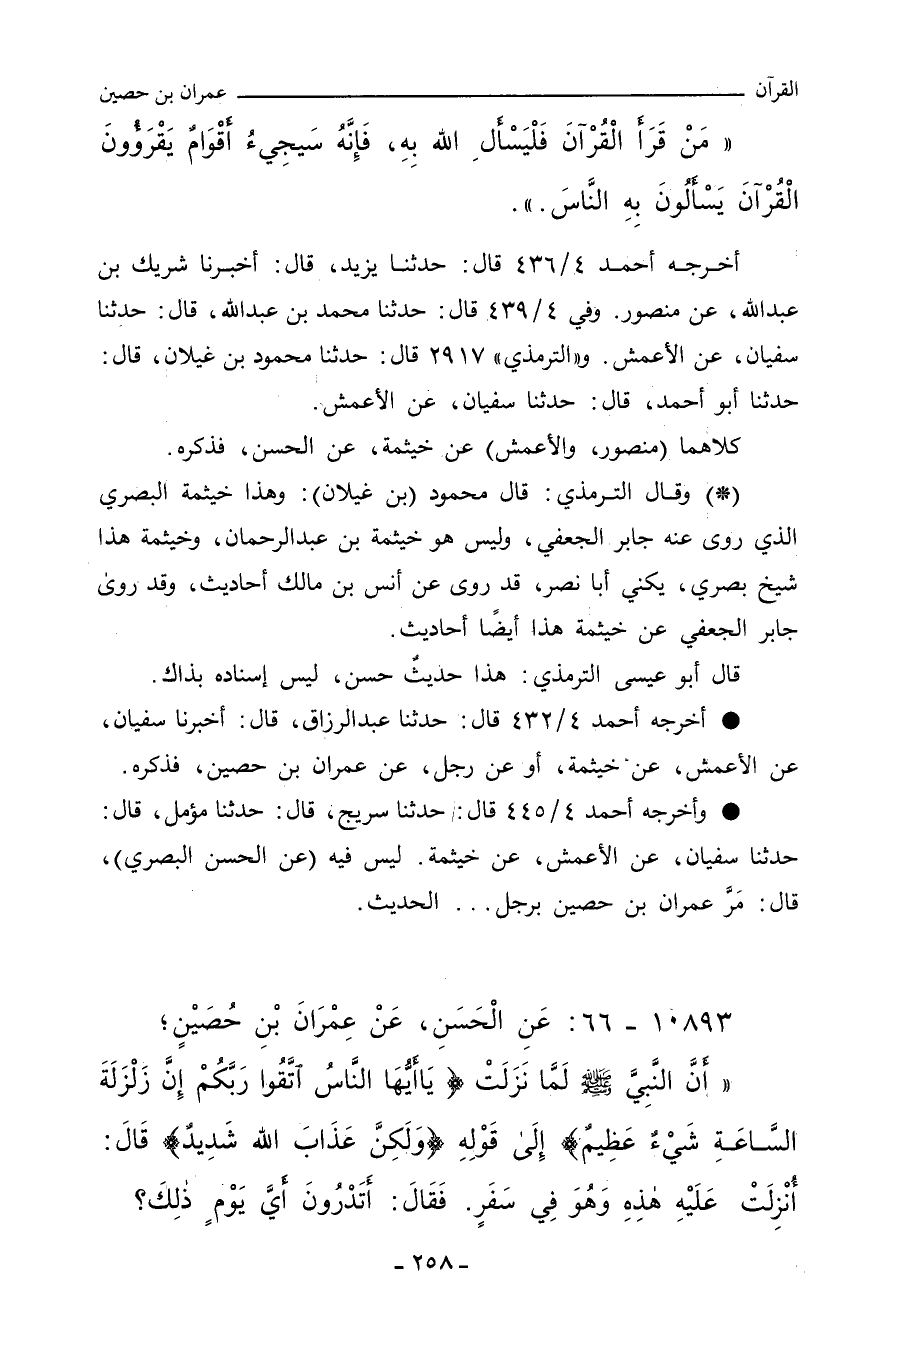 القرآن ــــــــــــــــــــ عمران بن حصين
« مَنْ قَرَأَ الْقُرْآنَ فَلْيَسْأَلِ الله بِهِ، فَإِنَّهُ سَيَجِيءُ أَقْوَامٌ يَقْرَؤُونَ
الْقُرْآنَ يَسْأَلُونَ بِهِ النَّاسَ . » .
أخرجه أحمد ٤/ ٤٣٦ قال: حدثنا يزيد، قال: أخبرنا شريك بن
عبدالله، عن منصور. وفي ٤/ ٤٣٩ قال: حدثنا محمد بن عبدالله، قال: حدثنا
سفيان، عن الأعمش. و«الترمذي» ٢٩١٧ قال: حدثنا محمود بن غيلان، قال:
حدثنا أبو أحمد، قال: حدثنا سفيان، عن الأعمش.
كلاهما (منصور، والأعمش) عن خيثمة، عن الحسن، فذكره.
(*) وقال الترمذي: قال محمود (بن غيلان): وهذا خيثمة البصري
الذي روى عنه جابر الجعفي، وليس هو خيثمة بن عبدالرحمان، وخيثمة هذا
شيخ بصري، يكني أبا نصر، قد روى عن أنس بن مالك أحاديث، وقد روىٰ
جابر الجعفي عن خيثمة هذا أيضًا أحاديث.
قال أبو عيسى الترمذي: هذا حديثٌ حسن، ليس إسناده بذاك.
● أخرجه أحمد ٤/ ٤٣٢ قال: حدثنا عبدالرزاق، قال: أخبرنا سفيان،
عن الأعمش، عن خيثمة، أو عن رجل، عن عمران بن حصين، فذكره.
● وأخرجه أحمد ٤/ ٤٤٥ قال: حدثنا سريج، قال: حدثنا مؤمل، قال:
حدثنا سفيان، عن الأعمش، عن خيثمة. ليس فيه (عن الحسن البصري)،
قال: مَرَّ عمران بن حصين برجل... الحديث.
١٠٨٩٣ - ٦٦: عَنِ الْحَسَنِ، عَنْ عِمْرَانَ بْنِ حُصَيْنٍ؛
« أَنَّ النَّبِيَّ ﷺ لَمَّا نَزَلَتْ ﴿ يَاأَيُّهَا النَّاسُ ٱتَّقُوا رَبَّكُمْ إِنَّ زَلْزَلَةَ
السَّاعَةِ شَيْءٌ عَظِيمٌ﴾ إِلَىٰ قَوْلِهِ ﴿وَلَكِنَّ عَذَابَ الله شَدِيدٌ﴾ قَالَ:
أُنْزِلَتْ عَلَيْهِ هٰذِهِ وَهُوَ فِي سَفَرٍ. فَقَالَ: أَتَدْرُونَ أَيَّ يَوْمٍ ذٰلِكَ؟
- ٢٥٨ -